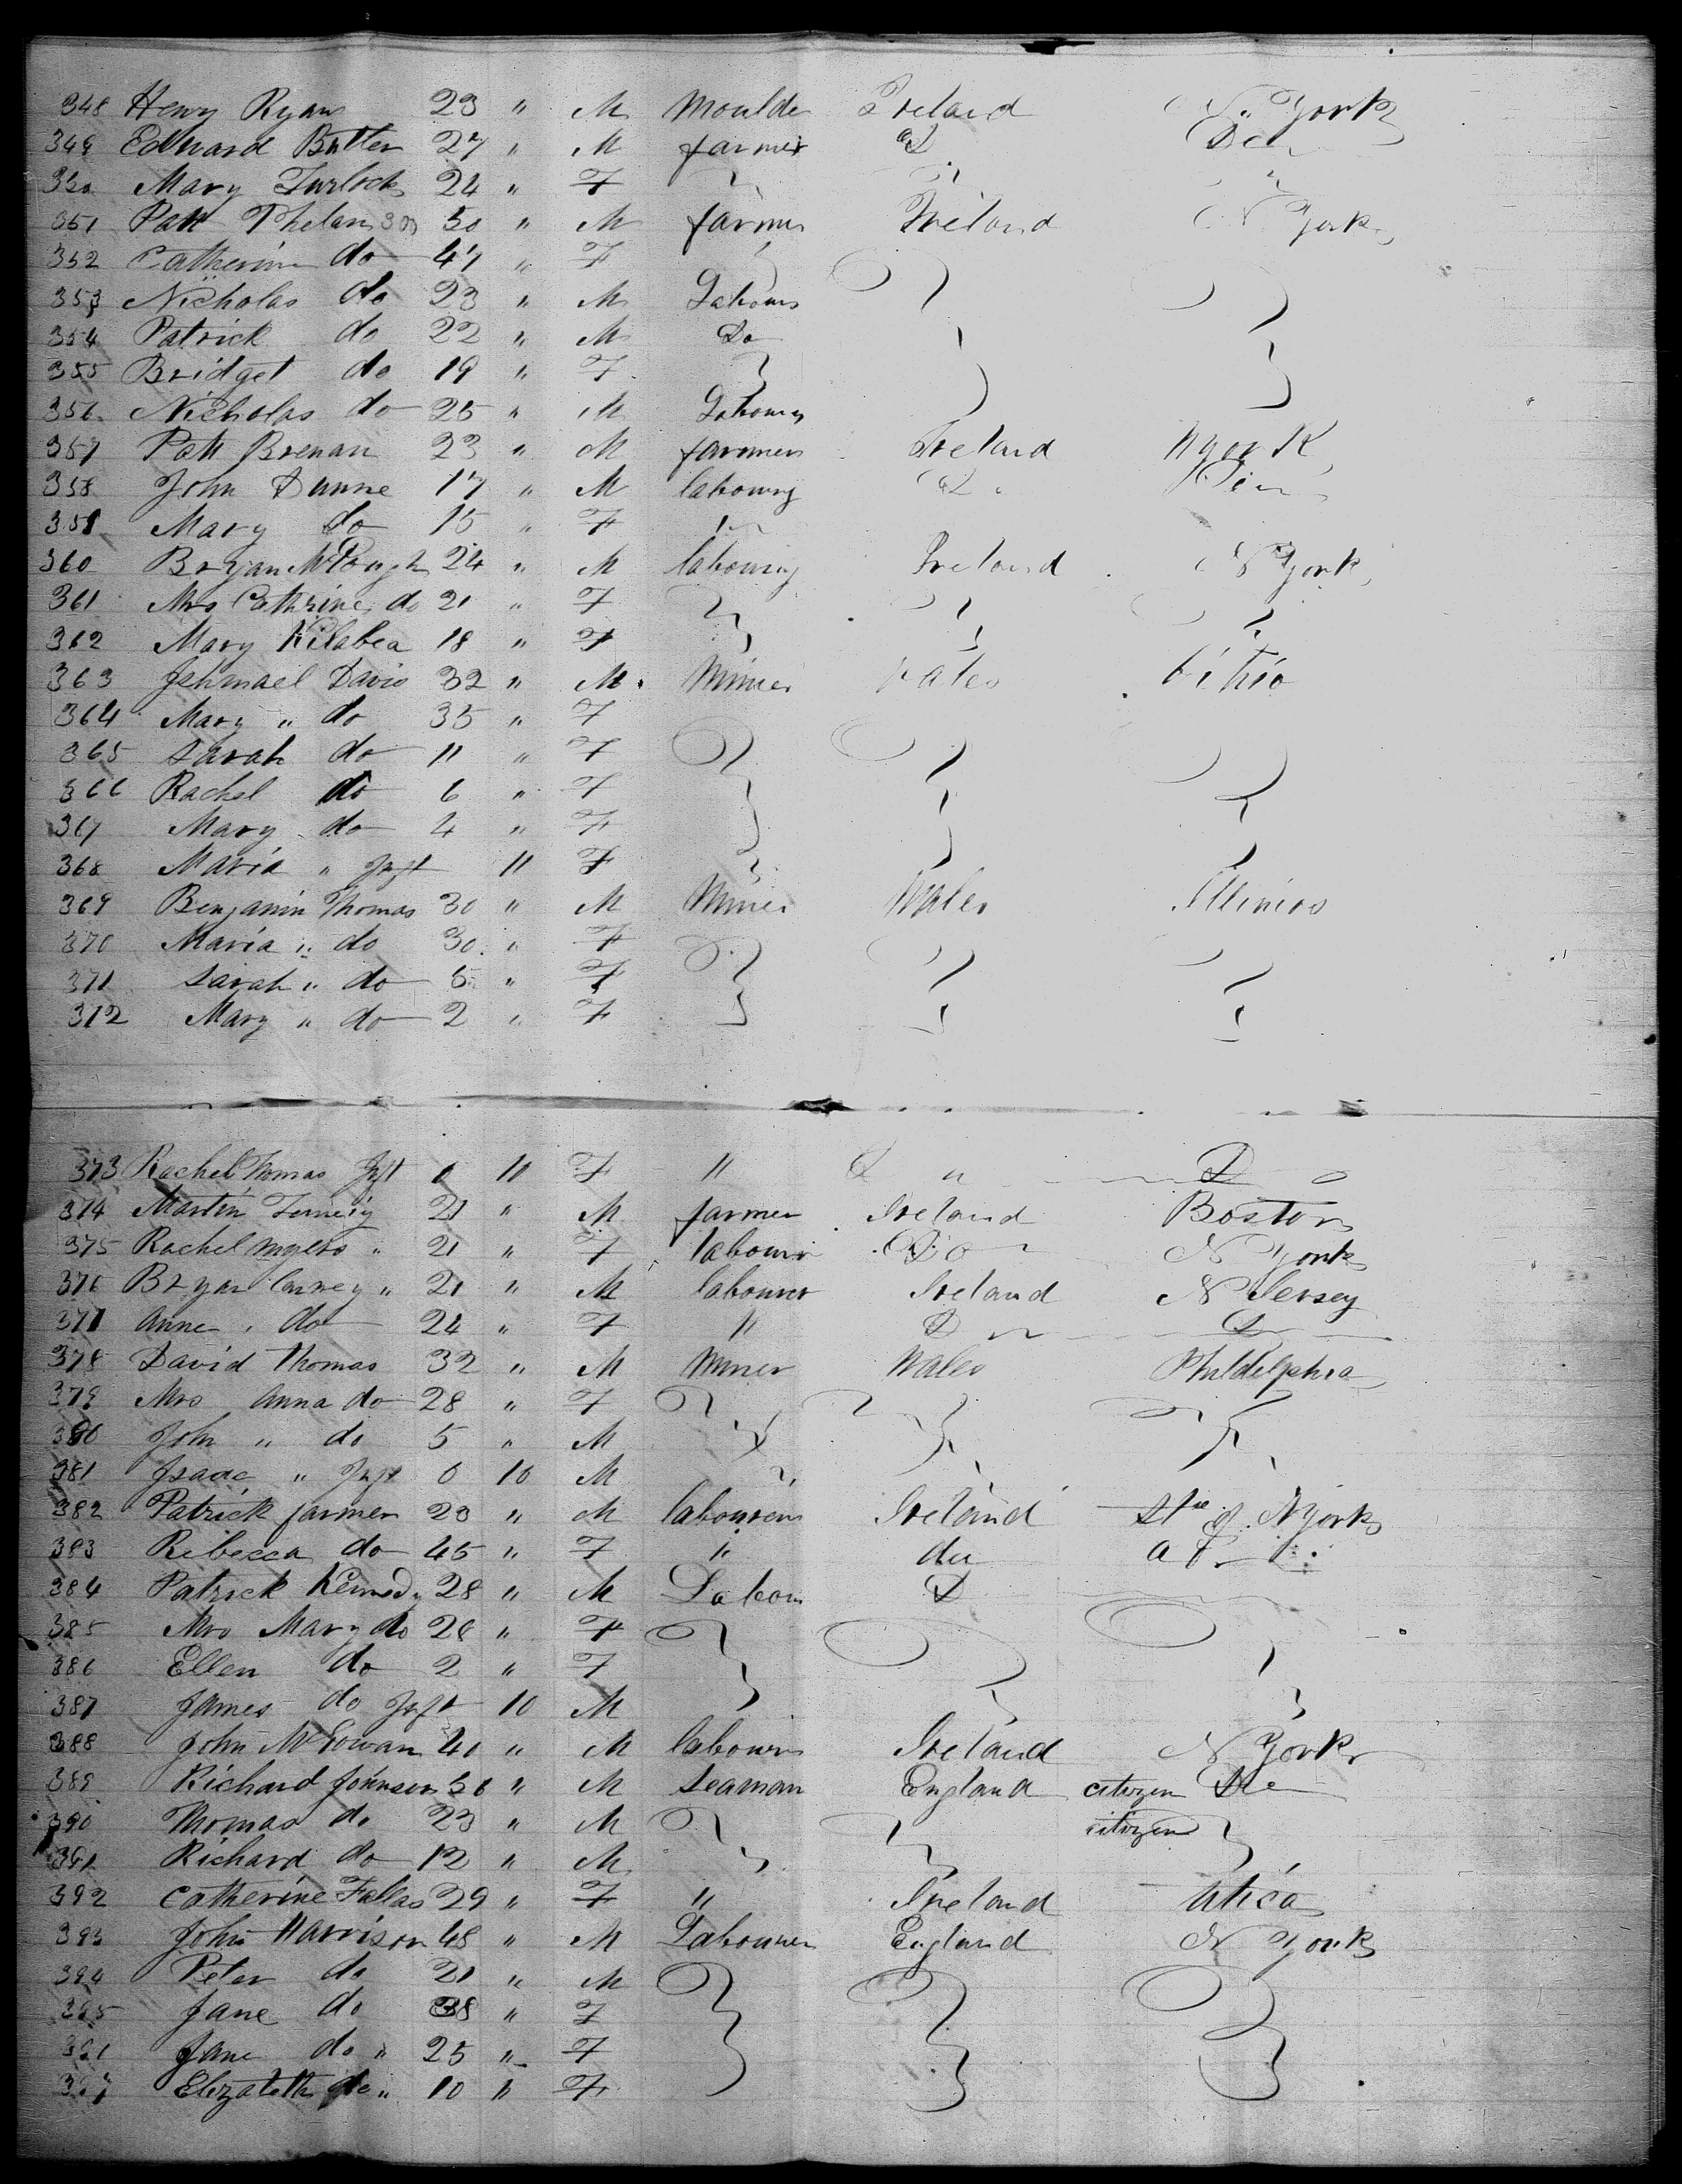 348 Henry Ryan 23 " M Moulder Ireland N. York
349 Edward Butler 27 " M farmer D Do
350 Mary Turlock 24 " F
351 Patt Phelan 50 " M farmer Ireland N York
352 Catherine do 47 " F
353 Nicholas do 23 " M Labourer
354 Patrick do 22 " M Do
355 Bridget do 19 " F
356 Nicholas do 25 " M Labourer
357 Patt Brenan 23 " M farmer Ireland N york
358 John Dunne 17 " M labouring D
359 Mary do 15 " F
360 Bryan 24 " M labouring Ireland N York
361 Mrs Cathrine do 21 " F
362 Mary Kilabea 18 " F
363 Ishmael Davis 32 " M Miner Wales
364 Mary " do 35 " F
365 Sarah do 11 " F
366 Rachel do 6 " F
367 Mary do 4 " F
368 Maria " Inft 11 F
369 Benjamin Thomas 30 " M Miner Wales Illinios
370 Maria " do 30 " F
371 Sarah " do 5 " F
372 Mary " do 2 " F
373 Rachel Thomas Inft 0 10 F " D " D
374 Martin 21 " M farmer Ireland Boston
375 Rachel Myles " 21 " F labourer Do N York
376 Bryan Carney " 21 " M labourer Ireland N Jersey
377 Anne " do 24 " F " D D
378 David Thomas 32 " M Miner Wales Phildelphia
379 Mrs Anna do 28 " F
380 John " do 5 " M
381 Isaac " Inft 0 10 M
382 Patrick farmer 23 " M labourer Ireland N York
383 Ribecca do 45 " F " do
384 Patrick Kennedy 28 " M Labour D
385 Mrs Mary do 26 " F
386 Ellen do 2 " F
387 James do Inft 10 M
388 John McGowan 40 " M labourer Ireland N York
389 Richard Johnson 50 " M Seaman England citizen Do
390 Thomas do 23 " M citizen
391 Richard do 12 " M
392 Catherine Fallas 29 " F " Ireland Utica
393 John Harrison 48 " M Labourer England N York
394 Peter do 21 " M
395 Jane do 38 " F
396 Jane do " 25 " F
397 Elizabeth do " 10 " F